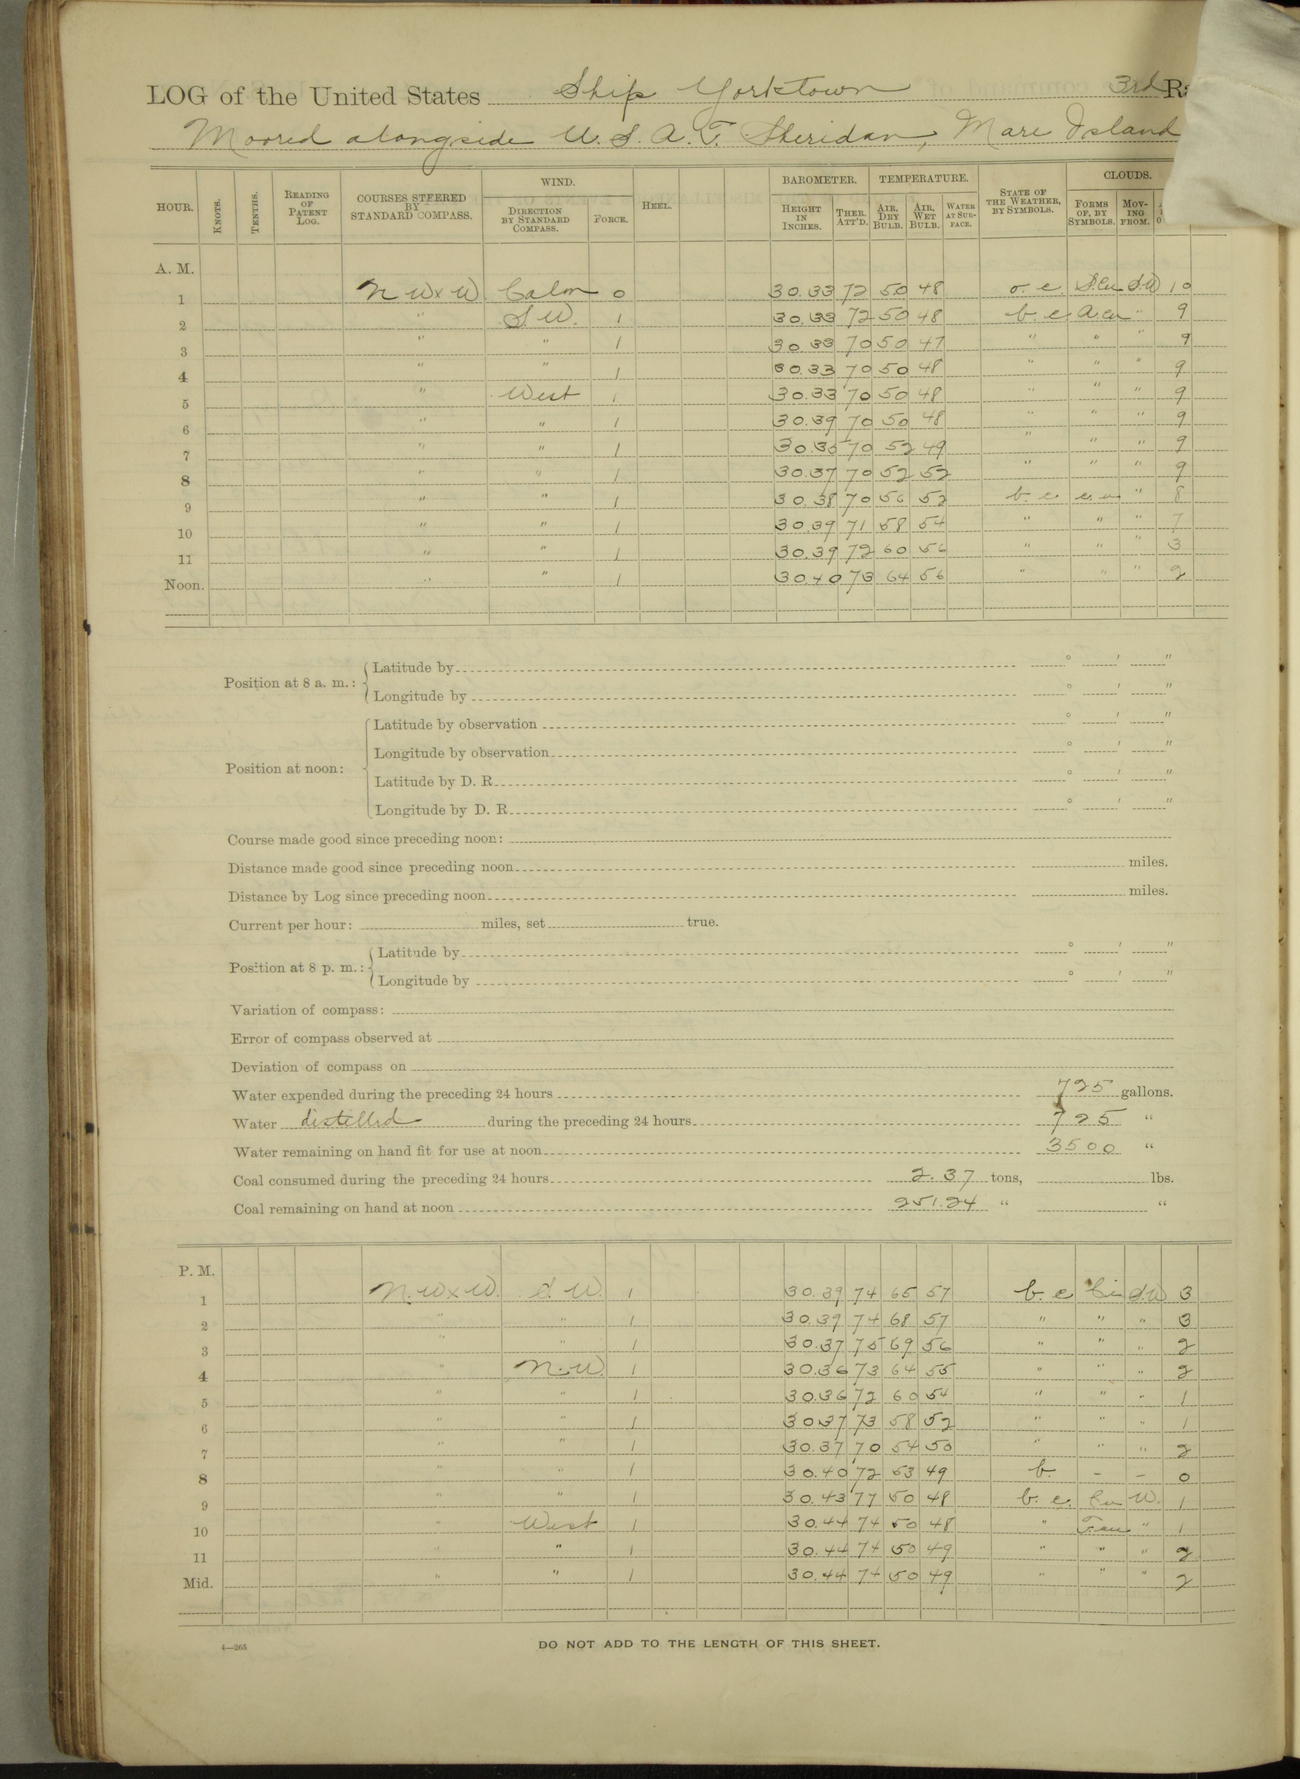 LOG of the United States Ship Yorktown 3rd R
Moored alongside U. S. A. T. Sheridan, Mare Island
HOUR. KNOTS. TENTHS. READING OF PATENT LOG. COURSES STEERED BY STANDARD COMPASS. WIND. DIRECTION BY STANDARD COMPASS. FORCE. HEEL. BAROMETER. HEIGHT IN INCHES. THER. ATT'D. TEMPERATURE. AIR, DRY BULB. AIR, WET BULB. WATER AT SURFACE. STATE OF THE WEATHER, BY SYMBOLS. CLOUDS. FORMS OF, BY SYMBOLS. MOVING FROM.
A. M.
1 N W x W Calm 0 30.33 72 50 48 o. c. S.Cu S.W 10
2 " S W. 1 30.33 72 50 48 b. c. A.cu " 9
3 " " 1 30 33 70 50 47 " " " 9
4 " " 1 30.33 70 50 48 " " " 9
5 " West 1 30.33 70 50 48 " " " 9
6 " " 1 30.39 70 50 48 " " " 9
7 " " 1 30.35 70 52 49 " " " 9
8 " " 1 30.37 70 52 52 " " " 9
9 " " 1 30.38 70 56 52 b. c. " 8
10 " " 1 30.39 71 58 54 " " " 7
11 " " 1 30.39 72 60 56 " " " 3
Noon. " " 1 30.40 73 64 56 " " " 2
Position at 8 a. m.: Latitude by ° ' "
Longitude by ° ' "
Position at noon: Latitude by observation ° ' "
Longitude by observation ° ' "
Latitude by D. R. ° ' "
Longitude by D. R. ° ' "
Course made good since preceding noon:
Distance made good since preceding noon miles.
Distance by Log since preceding noon miles.
Current per hour: miles, set true.
Position at 8 p. m.: Latitude by ° ' "
Longitude by ° ' "
Variation of compass:
Error of compass observed at
Deviation of compass on
Water expended during the preceding 24 hours 725 gallons.
Water distilled during the preceding 24 hours 725 "
Water remaining on hand fit for use at noon 3500 "
Coal consumed during the preceding 24 hours 2.37 tons, lbs.
Coal remaining on hand at noon 251.24 " "
P. M.
1 N. W x W. S. W. 1 30.39 74 65 57 b. c S.W 3
2 " " 1 30.37 74 68 57 " " " 3
3 " " 1 30.37 75 69 56 " " " 2
4 " N. W. 1 30.36 73 64 55 " " " 2
5 " " 1 30.36 72 60 54 " " " 1
6 " " 1 30 37 73 58 52 " " " 1
7 " " 1 30.37 70 54 50 " " " 2
8 " " 1 30.40 72 53 49 b. - - 0
9 " " 1 30.43 77 50 48 b. c. Cu W. 1
10 " West 1 30.44 74 50 48 " " 1
11 " " 1 30.44 74 50 49 " " " 2
Mid. " " 1 30.44 74 50 49 " " " 2
4—265 DO NOT ADD TO THE LENGTH OF THIS SHEET.